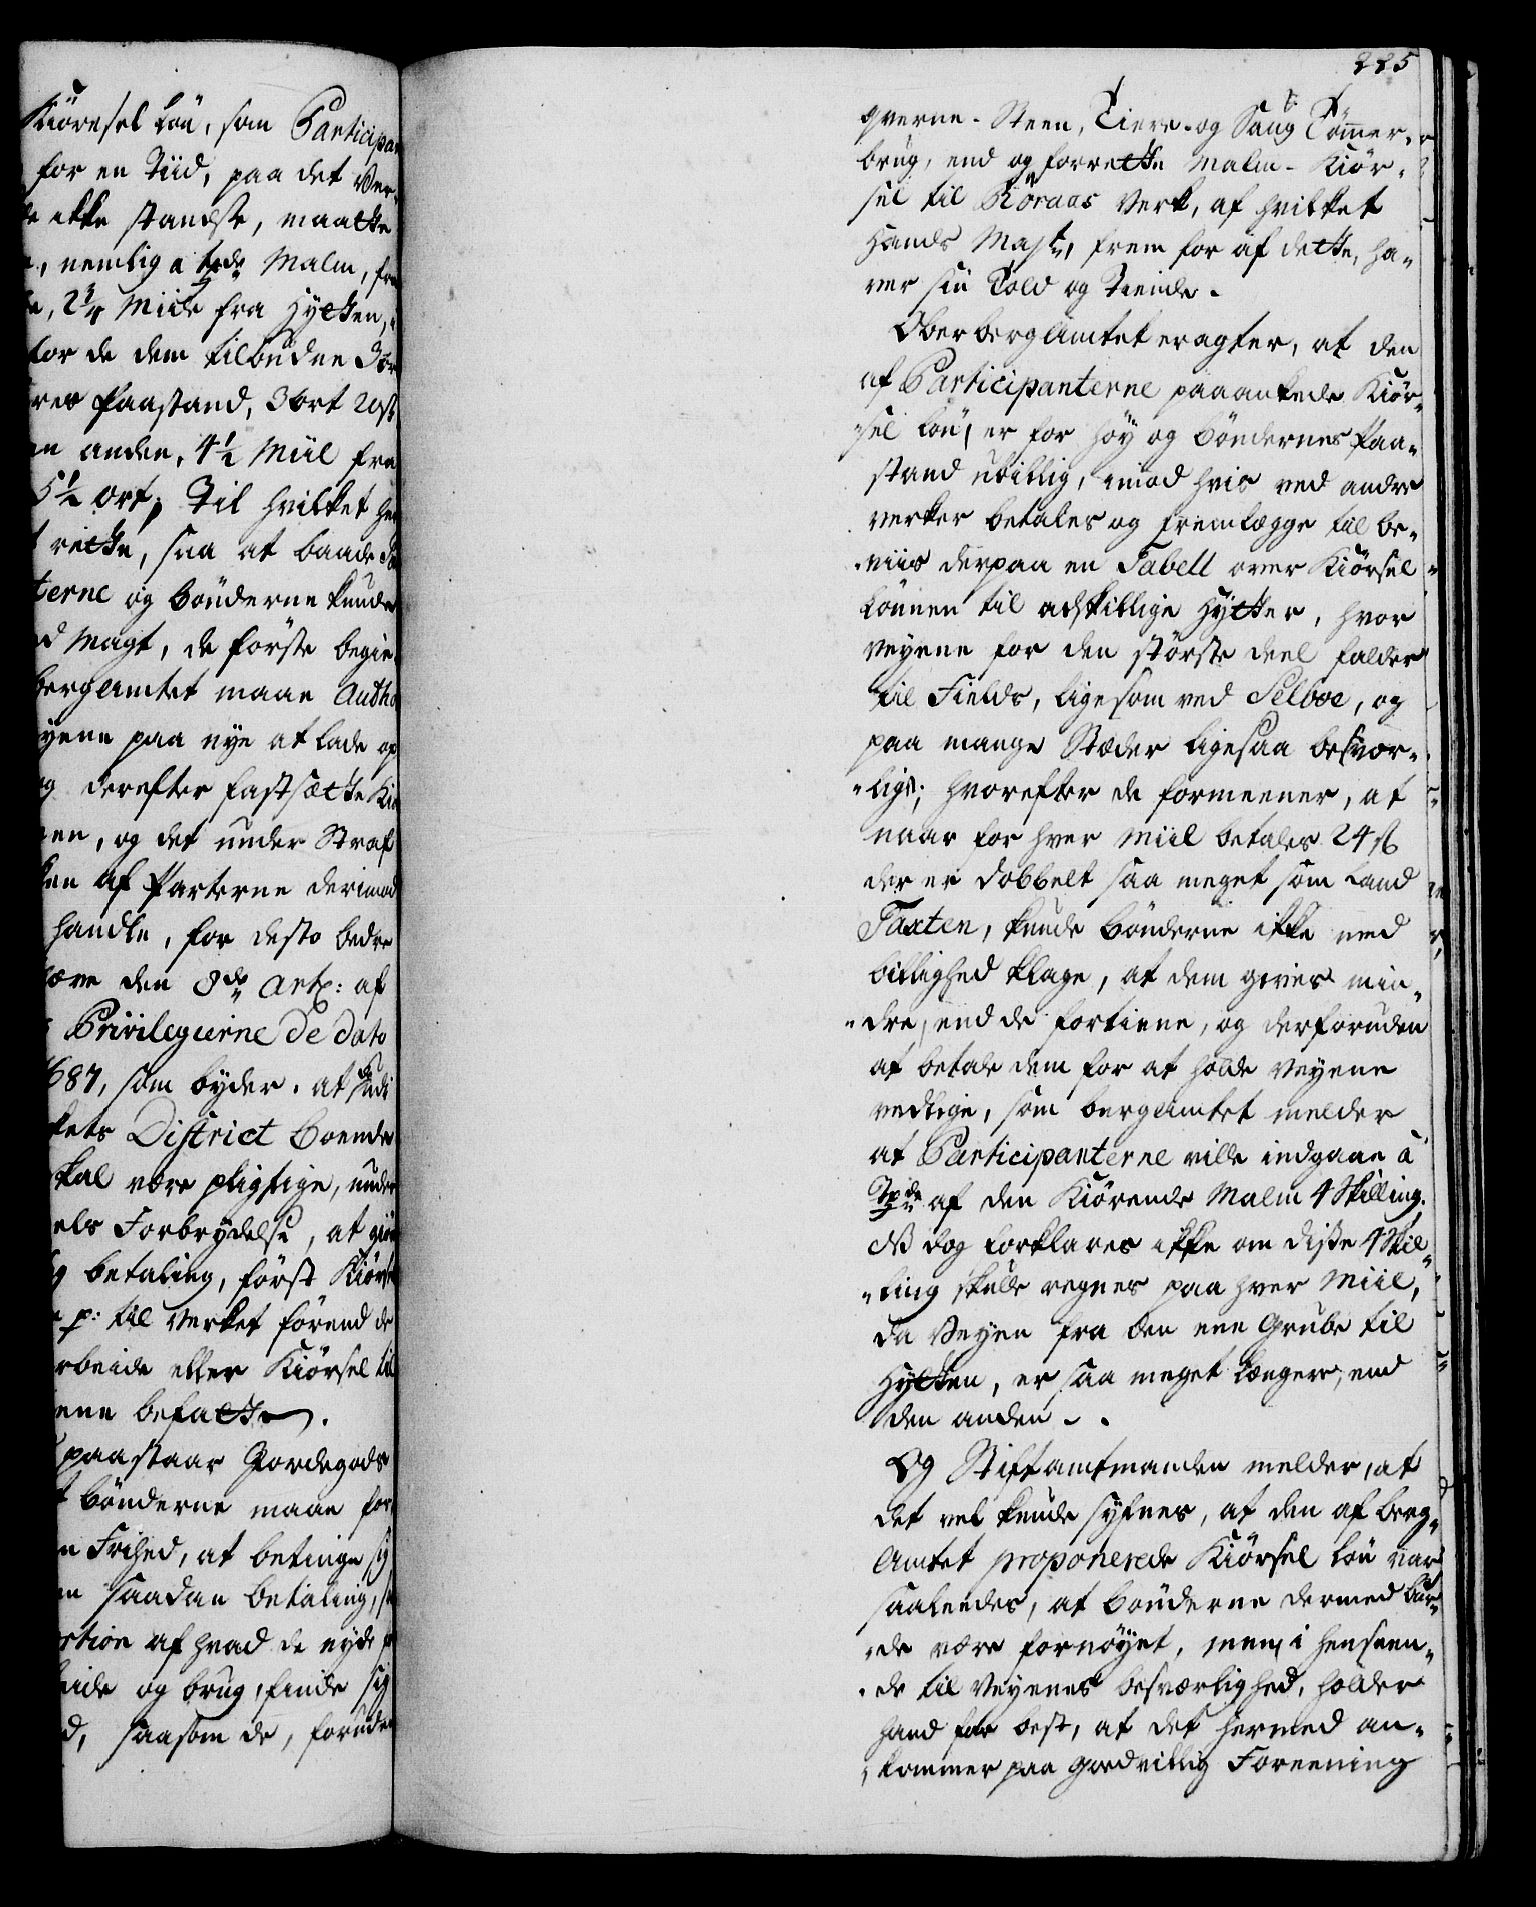 Kiörsel Lön, som Participan
for en Tiid, paa det Ver-
ikke standse, maatte
, nemlig a Tde Malm, fra
, 2¾ Miile fra Hytten,
for de dem tilbudne 3 or
res Paastand, 3 ort 20 s
en anden, 4½ Miil fra
5½ ort; Til hvilket
rette, saa at baade
terne og Bönderne kunde
d Magt, de förste begie
bergamtet maae Autho
yene paa nye at lade op
og derefter fastsætte Ki
en, og det under Straf
en af Parterne derimod
handle, for desto bedre
den 8de Art: af
Privilegierne de dato
687, som byder, at de udi
kets District Boende
kal være pligtige, under
els Forbrydelse, at giör
betaling, först Kiörs
p: til Verket förend de
rbeide eller Kiörsel til
ene befatte.
paastaar Jordegods
Bönderne maae for
Frihed, at betinge sig
saadan betaling,
rtion af hvad de nyde
eide og brug, finde sig
d, saasom de, foruden
225
qverne-Steen, Tiere- og Saug Tömmer-
brug, end og forrette Malm-Kiör-
sel til Röraas Verk, af hvilket
Hands Mayt, frem for af dette, ha-
ver sin Told og Tiende.
Oberbergamtet eragter, at den
af Participanterne paaankede Kiör-
sel Lön, er for höy og Böndernes Paa-
stand ubillig, imod hvis ved andre
verker betales og fremlegge til be-
viis derpaa en Tabell over Kiörsel
Lönnen til adskillige Hytter, hvor
Veyene for den störste deel falder
til Fields, ligesom ved Selboe, og
paa mange Stæder ligesaa besvær-
lige; hvorefter de formeener, at
naar for hver Miil betales 24 s
der er dobbelt saa meget som Land
Taxten, kunde Bönderne ikke med
billighed klage, at dem gives min-
dre, end de fortiene, og derforuden
at betale dem for at holde Veyene
vedlige, som bergamtet melder
at Participanterne ville indgaae à
Tde af den Kiörende Malm 4 Skilling.
NB dog forklares ikke om disse 4 Skil-
ling skulle regnes paa hver Miil,
da Veyen fra den ene Grube til
Hytten, er saa meget længere, end
den anden.
Og Stiftamtmanden melder, at
det vel kunde synes, at den af Berg-
Amtet proponerede Kiörsel Lön var
saaledes, at Bönderne dermed bur-
de være fornöyet, men i henseen-
de til Veyenes besværlighed, holder
hand for best, at det hermed an-
kommer paa godvillig Foreening